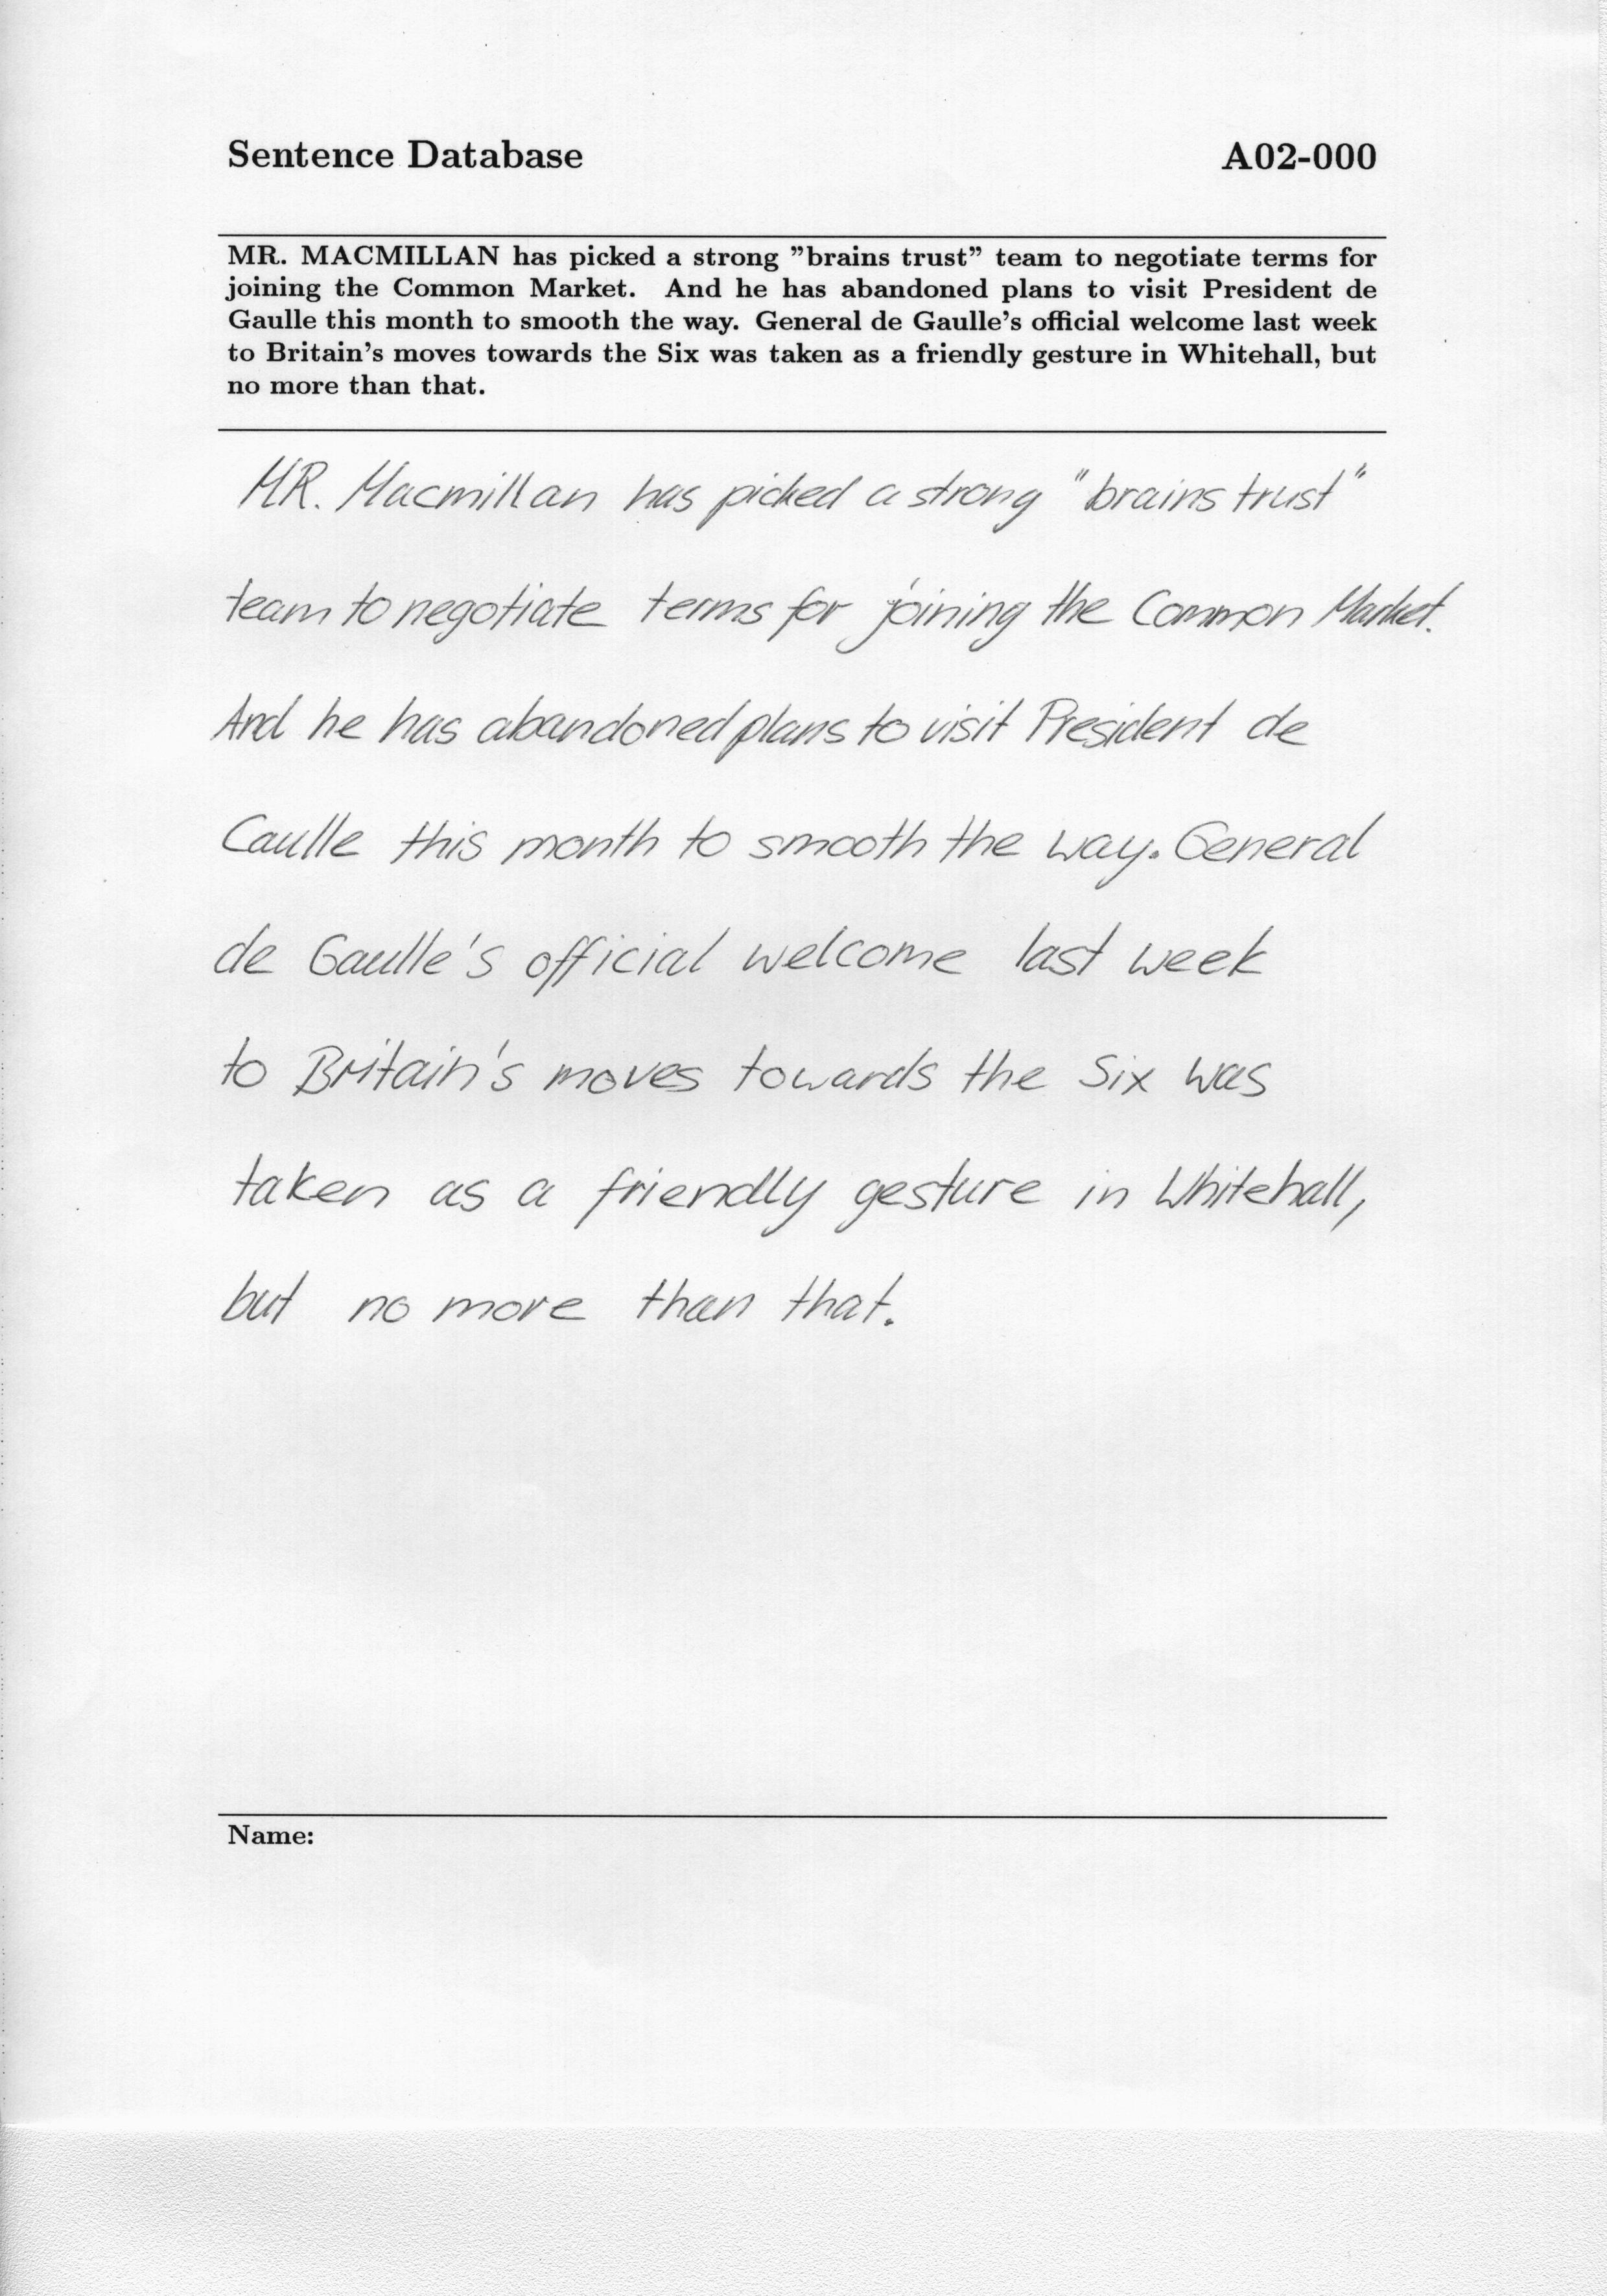 Sentence Database A02-000
MR. MACMILLAN has picked a strong ”brains trust” team to negotiate terms for
joining the Common Market. And he has abandoned plans to visit President de
Gaulle this month to smooth the way. General de Gaulle’s official welcome last week
to Britain’s moves towards the Six was taken as a friendly gesture in Whitehall, but
no more than that.
MR. Macmillan has picked a strong "brains trust"
team to negotiate terms for joining the Common Market.
And he has abandoned plans to visit President de
Caulle this month to smooth the way. General
de Gaulle's official welcome last week
to Britain's moves towards the Six was
taken as a friendly gesture in Whitehall,
but no more than that.
Name: